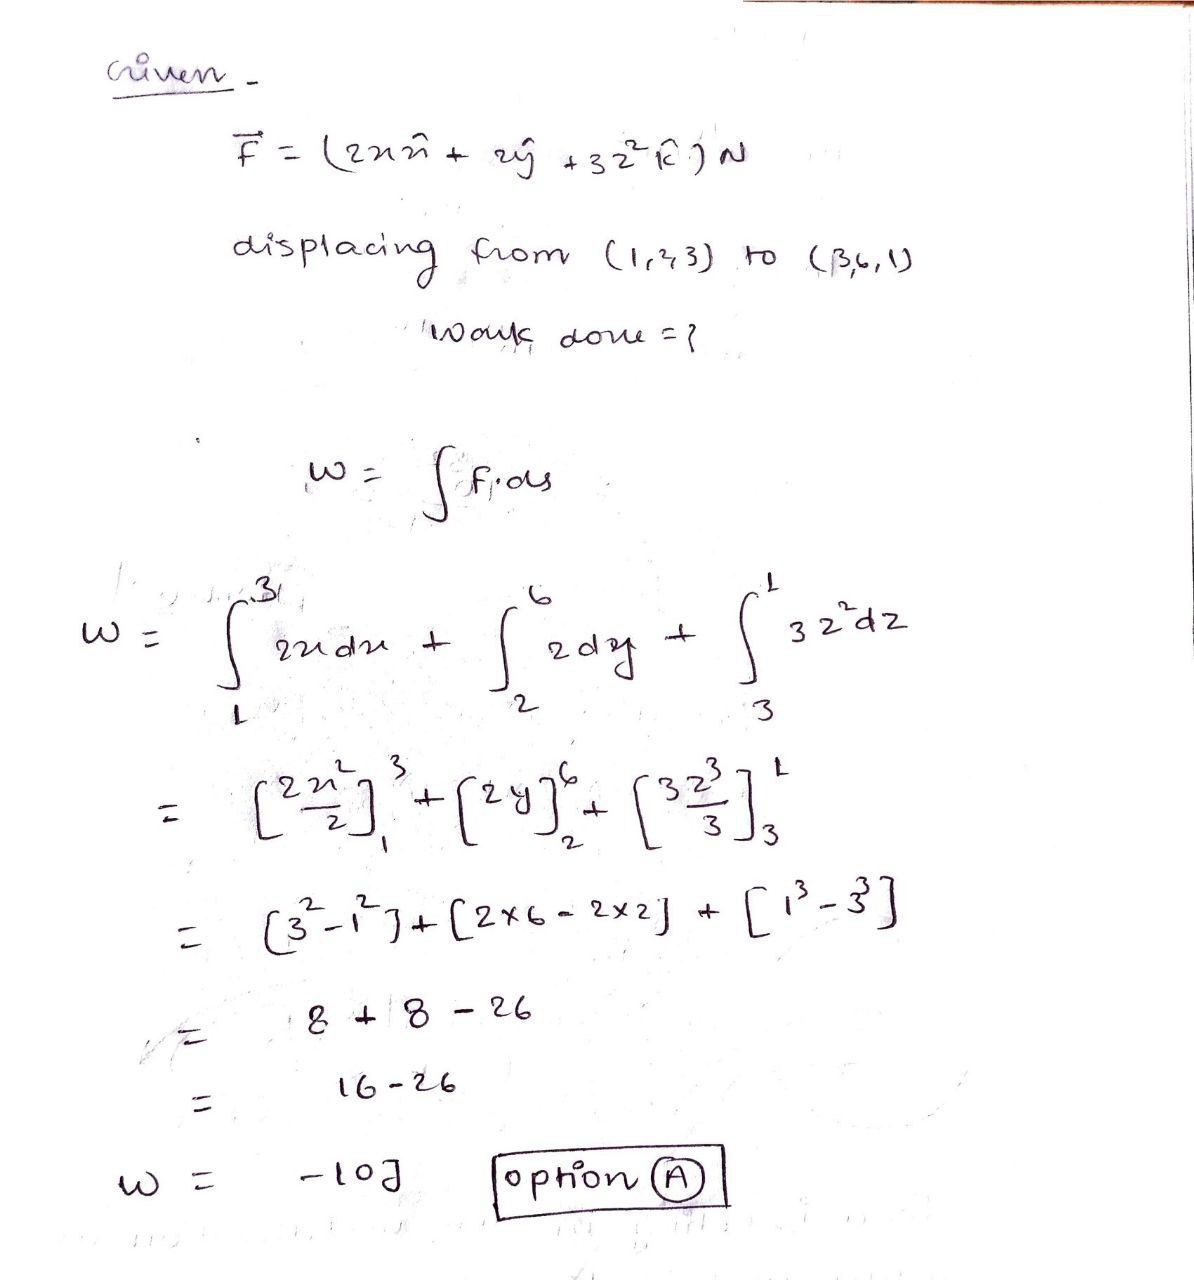 Given -
F⃗ = (2xx̂ + 2ŷ + 3z² k̂) N
displacing from (1,2,3) to (3,6,1)
Work done = ?
W = ∫ F.ds
W = ∫₁³ 2x dx + ∫₂⁶ 2dy + ∫₃¹ 3z²dz
= [2x²/2]₁³ + [2y]₂⁶ + [3z³/3]₃¹
= [3²-1²] + [2×6 - 2×2] + [1³-3³]
= 8 + 8 - 26
= 16-26
W = -10J option (A)